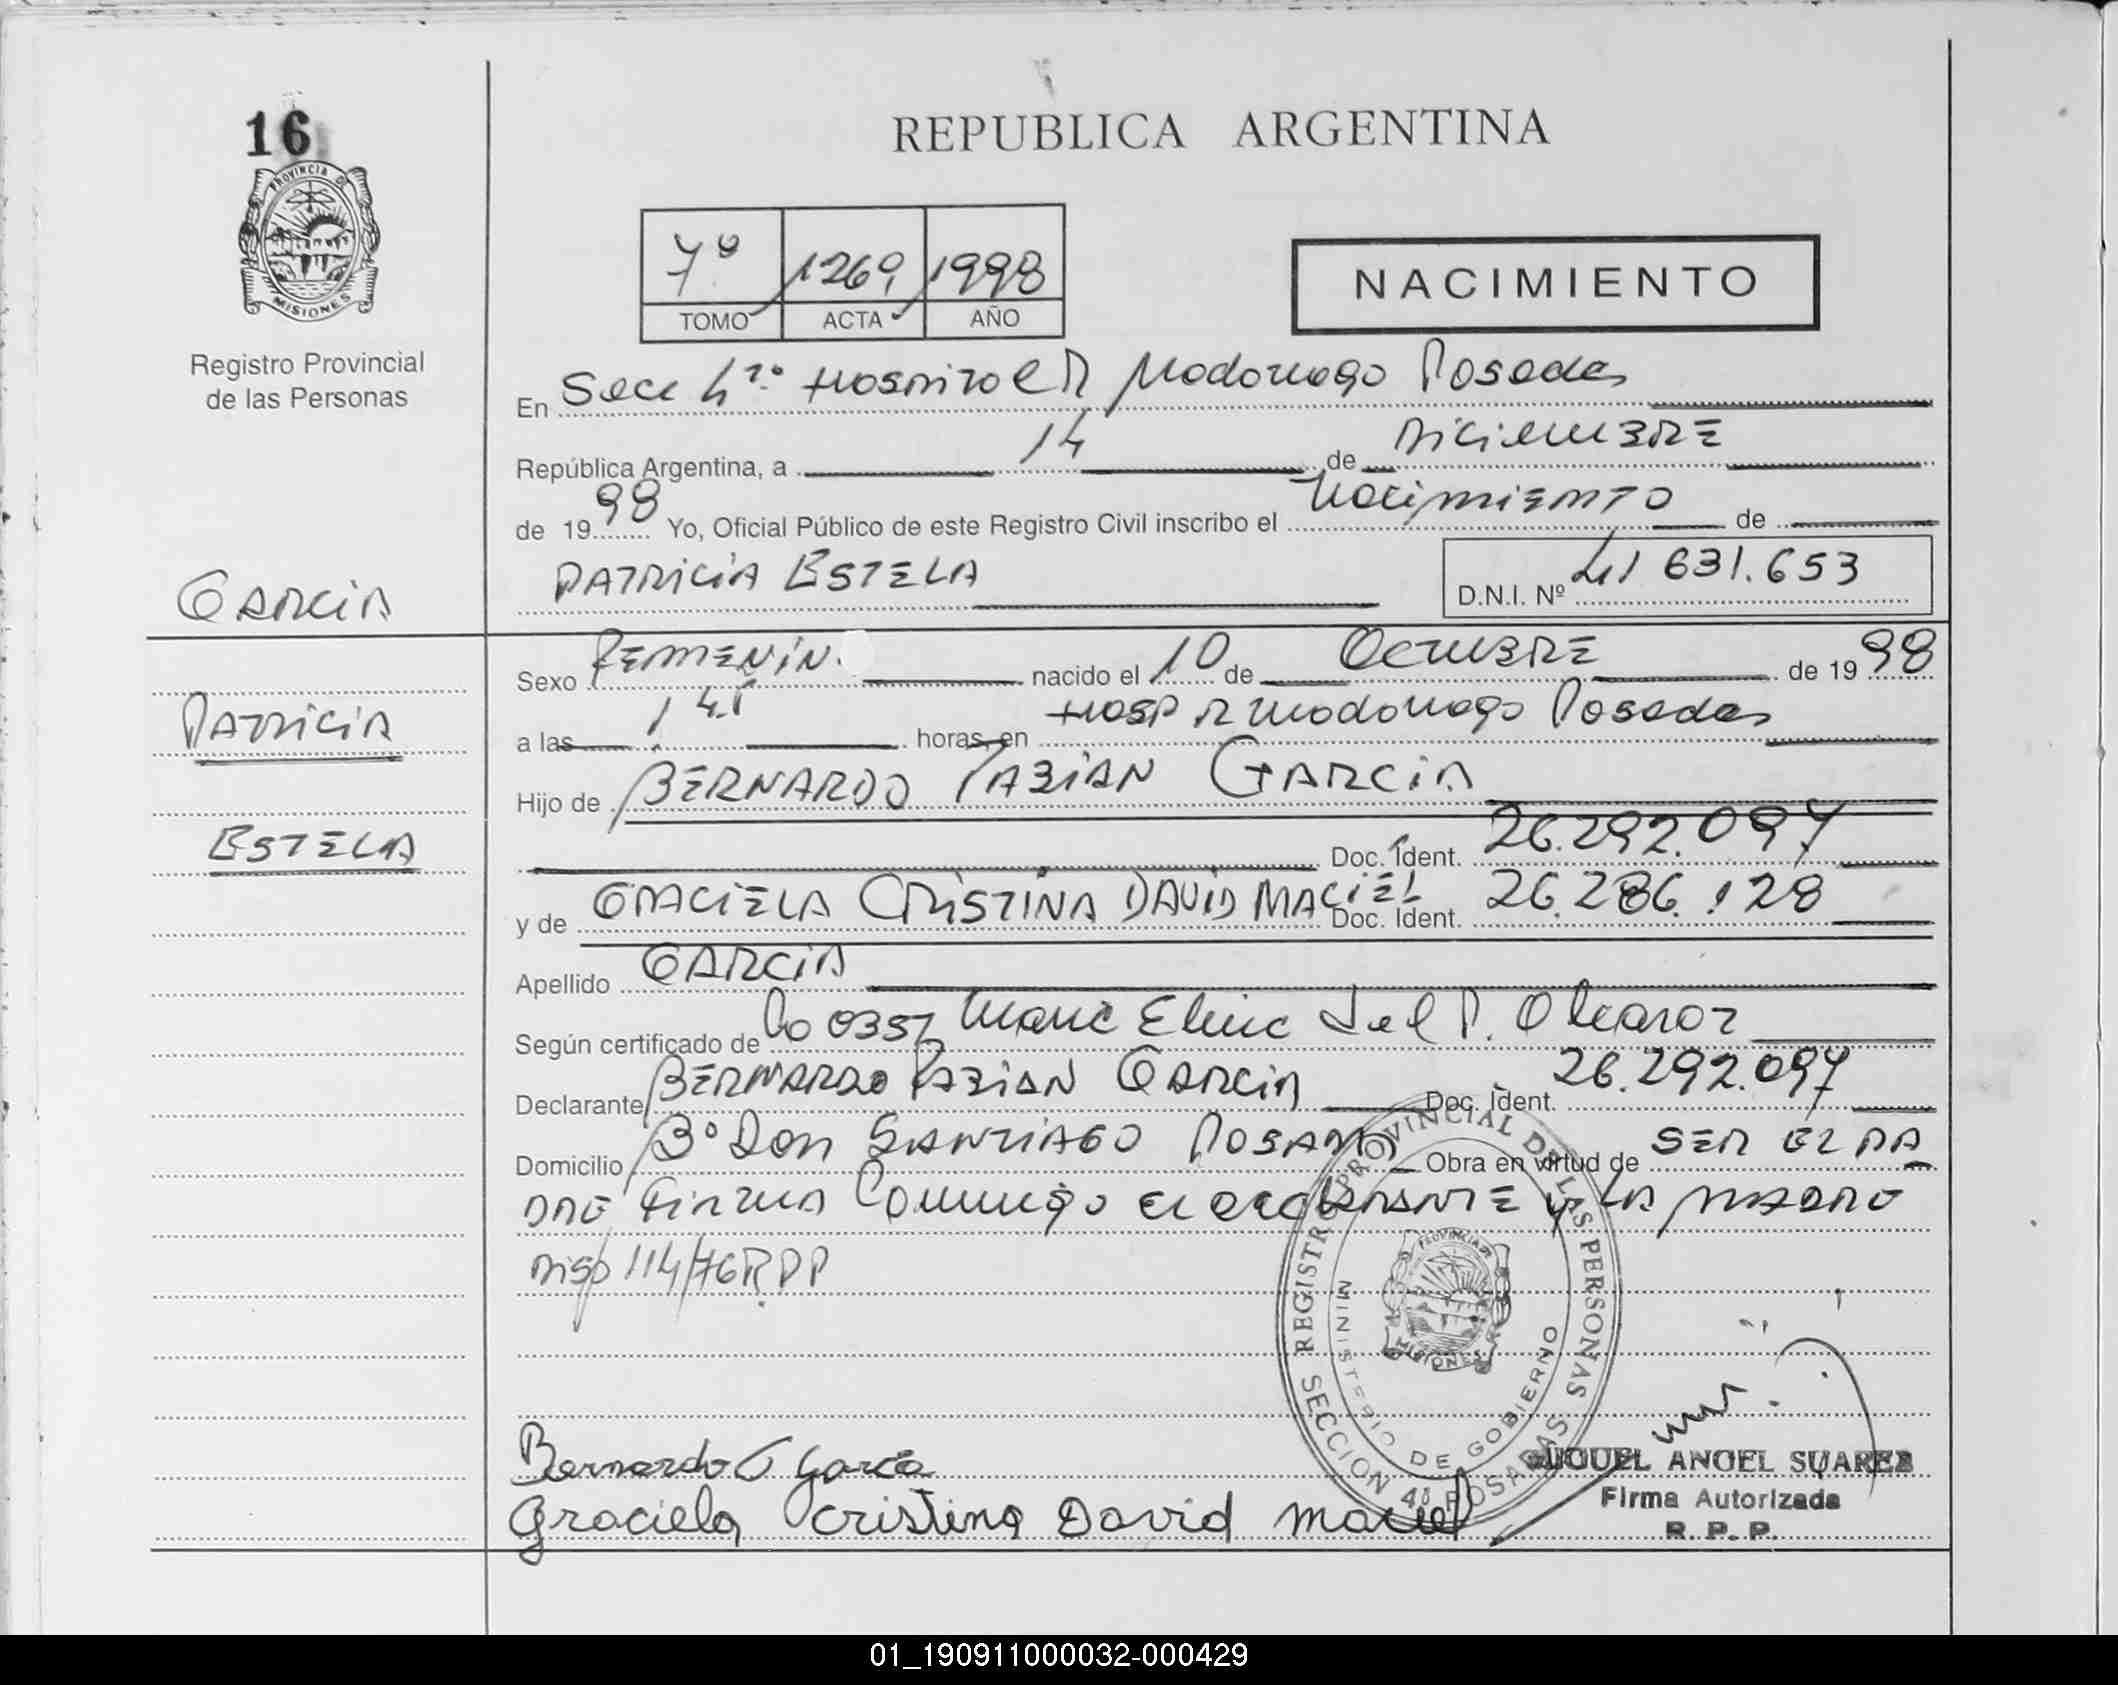 16
PROVINCIA DE
MISIONES
Registro Provincial
de las Personas
REPUBLICA ARGENTINA
7º 1269 1998
TOMO ACTA AÑO
NACIMIENTO
En Secc 4ª Hospital R Madariaga Posadas
República Argentina, a 14 de Diciembre
de 1998 Yo, Oficial Público de este Registro Civil inscribo el Nacimiento de
PATRICIA ESTELA D.N.I. Nº 41 631.653
GARCIA
PATRICIA
ESTELA
Sexo FEMENIN. nacido el 10 de OCTUBRE de 1998
a las horas, en Hosp R Madariaga Posadas
Hijo de BERNARDO FABIAN GARCIA
Doc. Ident. 26.292.097
y de GRACIELA CRISTINA DAVID MACIEL Doc. Ident. 26.286.128
Apellido GARCIA
Según certificado de del
Declarante BERNARDO FABIAN GARCIA Doc. Ident. 26.292.097
Domicilio Bº Don SANTIAGO POSADAS Obra en virtud de SER EL PA
DRE FIRMA Conmigo EL DECLARANTE y LA MADRE
Disp 114/76 R.P.P
REGISTRO PROVINCIAL DE LAS PERSONAS
MINISTERIO DE GOBIERNO
SECCION 4ª POSADAS
PROVINCIA DE
MISIONES
Bernardo F Garcia
Graciela Cristina David Maciel
MIGUEL ANGEL SUAREZ
Firma Autorizada
R. P. P.
01_190911000032-000429